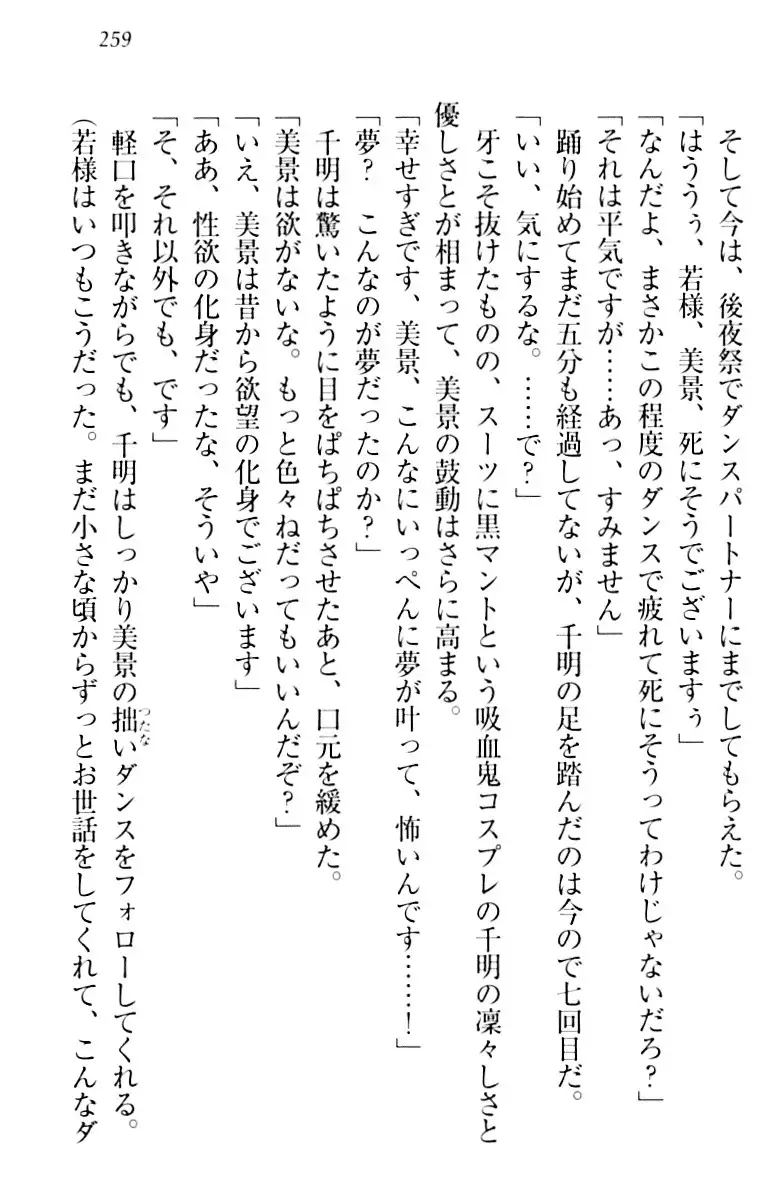 259
そして今は、後夜祭でダンスパートナーにまでしてもらえた。
「はううぅ、若様、美景、死にそうでございますぅ」
「なんだよ、まさかこの程度のダンスで疲れて死にそうってわけじゃないだろ？」
「それは平気ですが……あっ、すみません」
踊り始めてまだ五分も経過してないが、千明の足を踏んだのは今ので七回目だ。
「いい、気にするな。……で？」
牙こそ抜けたものの、スーツに黒マントという吸血鬼コスプレの千明の凜々しさと
優しさとが相まって、美景の鼓動はさらに高まる。
「幸せすぎです、美景、こんなにいっぺんに夢が叶って、怖いんです……！」
「夢？　こんなのが夢だったのか？」
千明は驚いたように目をぱちぱちさせたあと、口元を緩めた。
「美景は欲がないな。もっと色々ねだってもいいんだぞ？」
「いえ、美景は昔から欲望の化身でございます」
「ああ、性欲の化身だったな、そういや」
「そ、それ以外でも、です」
軽口を叩きながらでも、千明はしっかり美景の拙いダンスをフォローしてくれる。
つたな
（若様はいつもこうだった。まだ小さな頃からずっとお世話をしてくれて、こんなダ